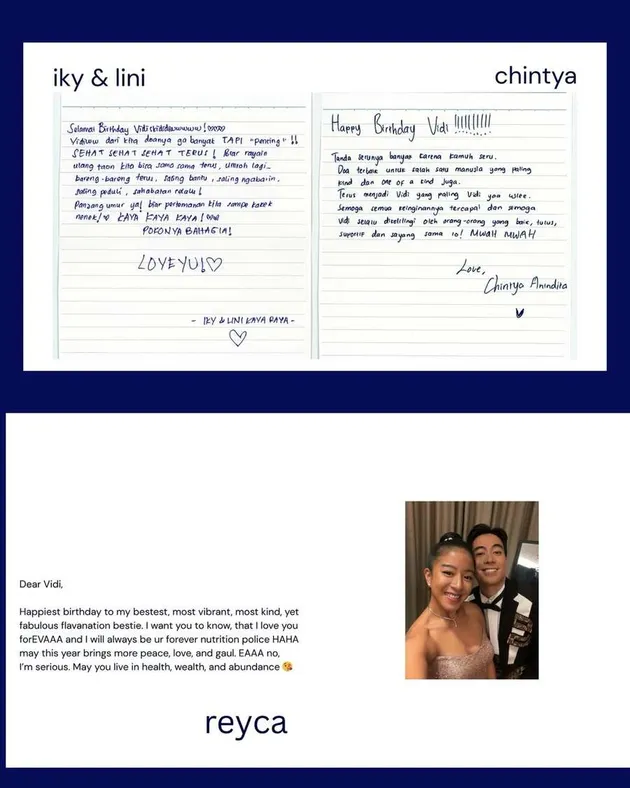 iky & lini
Selamat Birthday Vidi
Vidiuw dari kita doanya ga banyak TAPI "penting" !!
SEHAT SEHAT SEHAT TERUS! Biar rayain
ulang taon kita bisa sama sama terus, umroh lagi
bareng-bareng terus, saling bantu, saling ngabarin,
saling peduli, sahabatan selalu!
Panjang umur ya! biar pertemanan kita sampe kakek
nenek! KAYA KAYA KAYA!
POKONYA BAHAGIA!
LOVEYU!♡
- IKY & LINI KAYA RAYA -
♡
chintya
Happy Birthday Vidi !!!!!!!!!!
Tanda serunya banyak karena kamuh seru.
Doa terbaik untuk salah satu manusia yang paling
kind dan one of a kind juga.
Terus menjadi Vidi yang paling Vidi yaa
Semoga semua keinginannya tercapai dan semoga
Vidi selalu dikelilingi oleh orang-orang yang baik, tulus,
suportif dan sayang sama lo! MWAH MWAH
Love,
Chintya Anindita
Dear Vidi,
Happiest birthday to my bestest, most vibrant, most kind, yet
fabulous flavanation bestie. I want you to know, that I love you
forEVAAA and I will always be ur forever nutrition police HAHA
may this year brings more peace, love, and gaul. EAAA no,
I'm serious. May you live in health, wealth, and abundance 😘
reyca